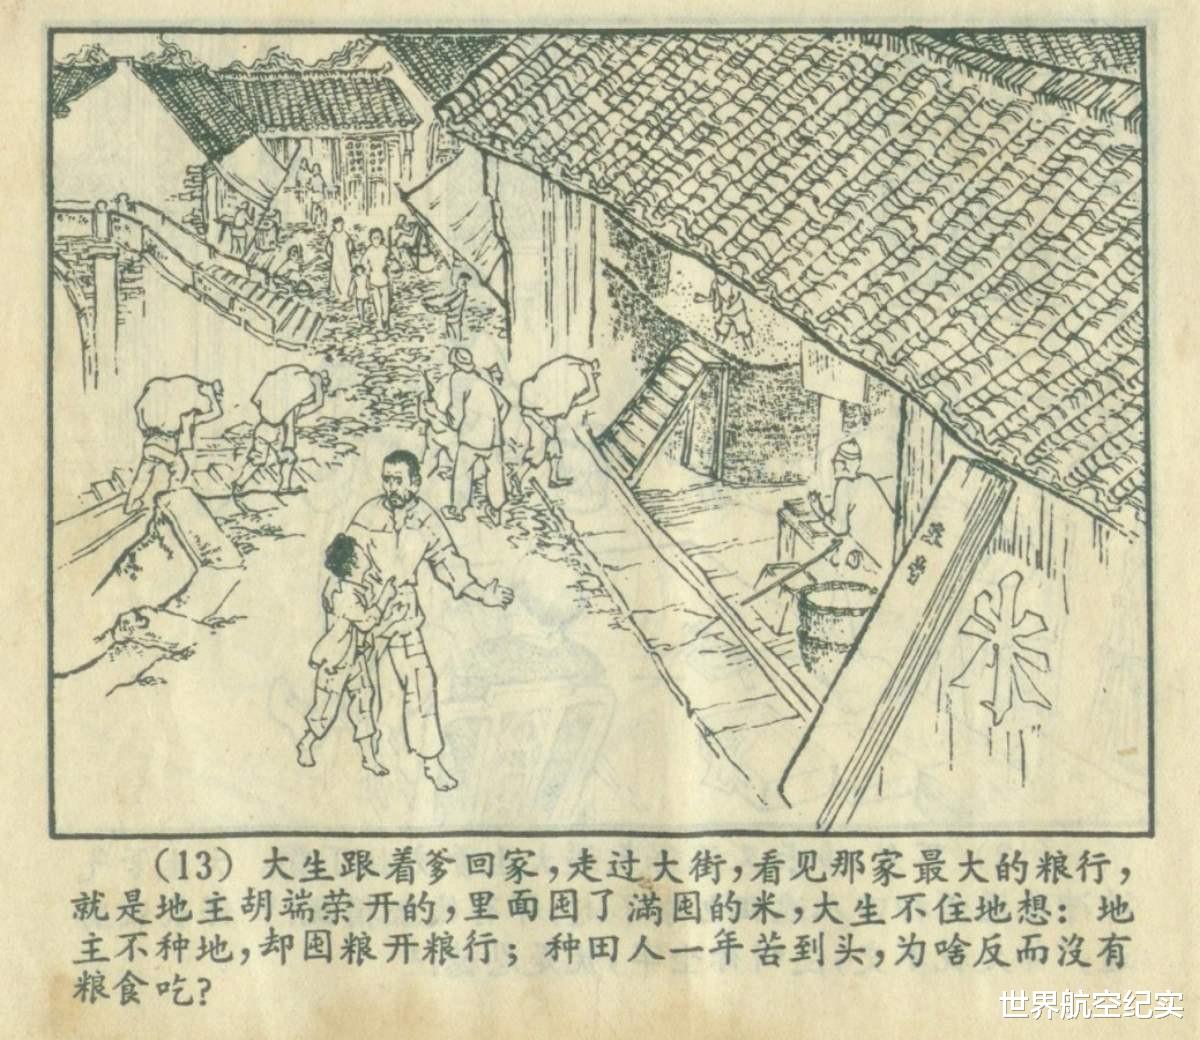 米
(13) 大生跟着爹回家，走过大街，看见那家最大的粮行，
就是地主胡端荣开的，里面囤了滿囤的米，大生不住地想：地
主不种地，却囤粮开粮行；种田人一年苦到头，为啥反而沒有
粮食吃？
世界航空纪实